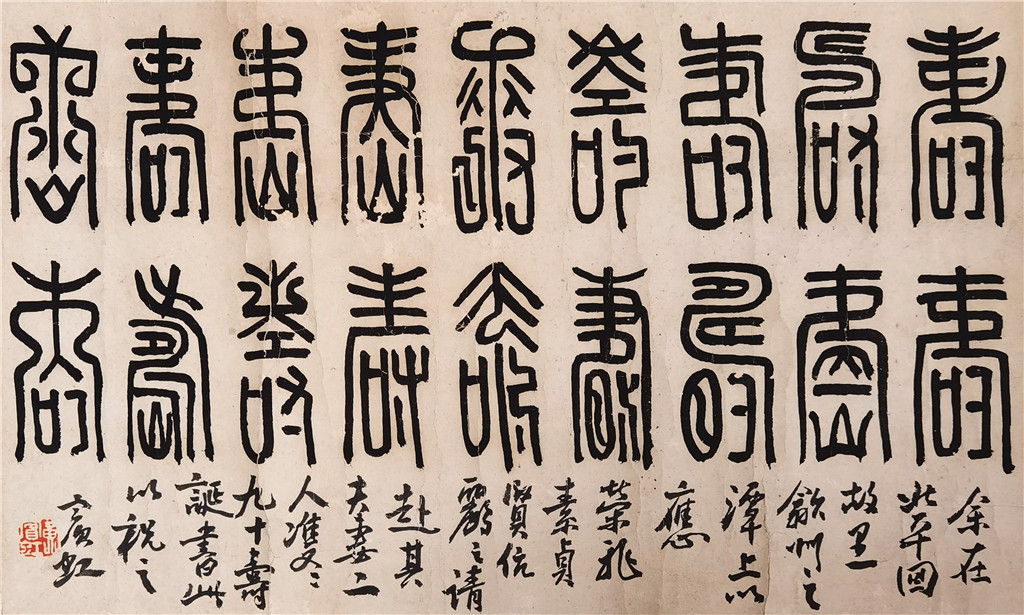 壽壽壽壽壽壽壽壽壽
壽壽壽壽壽壽壽壽壽
余在
北平回
故里
歙州之
潭上以
應
榮
素貞
賢伉
儷之請
赴其
夫妻二
人雙〻
九十壽
誕書此
以祝之
賓虹
黃賓虹